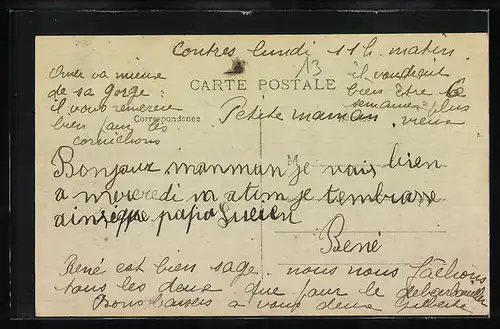 Contres lundi 11h. matin
13
CARTE POSTALE
Correspondance
Omer va mieux
de sa gorge :
il vous remercie
bien pour les
cornichons
il voudrait
bien être
semaine plus
vieux
Petite maman
M
Bonjour manman je vais bien
a mercredi va je tembrasse
ainsique papa Lucien
René
René est bien sage. nous nous fâchons
tous les deux que pour le débarbouiller
Bons baisers a vous deux Gilberte